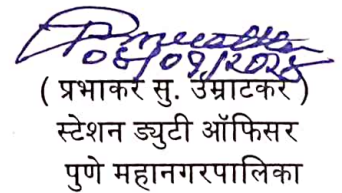 ( प्रभाकर सु. उम्राटकर )
स्टेशन ड्युटी ऑफिसर
पुणे महानगरपालिका